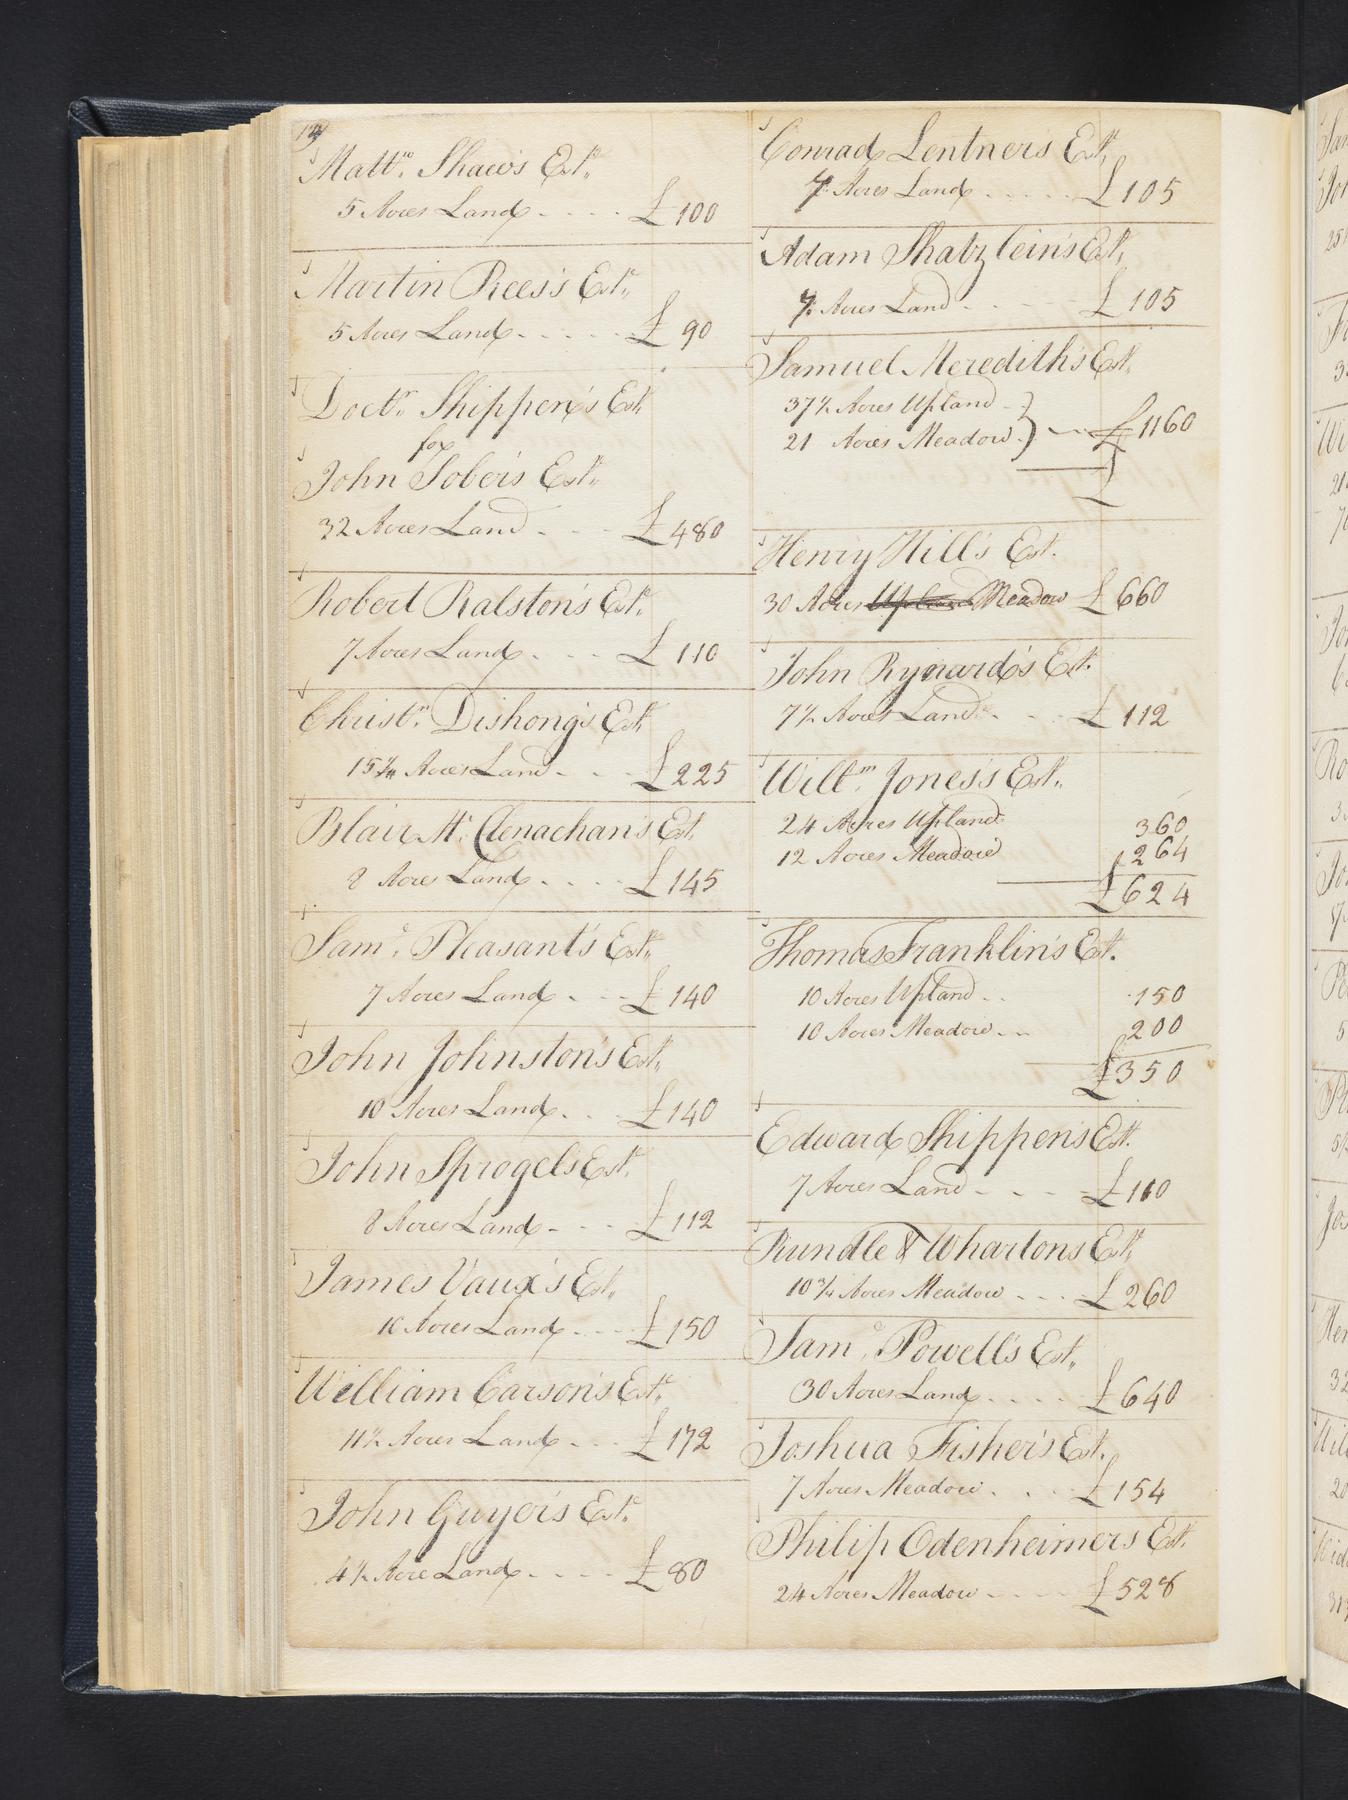 Matt.w Shaw's Est.
5 Acres Land £100
Martin Rees's Est.e
5 Acres Land £ 90
Doct.r Shippen's Est.
for
John Sober's Est.
32 Acres Land £480
Robert Ralston's Est.
7 Acres Land £ 110
Christ.n Dishong's Est.
15 3/4 Acres Land £225
Blair Mc. Clenachan's Est.
8 Acres Land £145
Sam.l Pleasant's Est.
7 Acres Land £140
John Johnston's Est.
10 Acres Land £140
John Sprogel's Est.
8 Acres Land £112
James Vaux's Est.
10 Acres Land £150
William Carson's Est.
11 1/2 Acres Land £172
John Guyer's Est.
4 1/2 Acre Land £80
Conrad Lentner's Est.
7 Acres Land £105
Adam Shatzlein's Est.
7 Acres Land £105
Samuel Meredith's Est.
37 1/2 Acres Upland
21 Acres Meadow £1160
Henry Hill's Est.
30 Acres Upland Meadow £660
John Rynard's Est.
7 1/2 Acres Land £112
Will.m Jones's Est.
24 Acres Upland 360
12 Acres Meadow 264
£624
Thomas Franklin's Est.
10 Acres Upland 150
10 Acres Meadow 200
£350
Edward Shippen's Est.
7 Acres Land £110
Rundle & Whartons Est.
10 3/4 Acres Meadow £260
Sam.l Powell's Est.
30 Acres Land £640
Joshua Fisher's Est.
7 Acres Meadow £154
Philip Odenheimers Est.
24 Acres Meadow £528